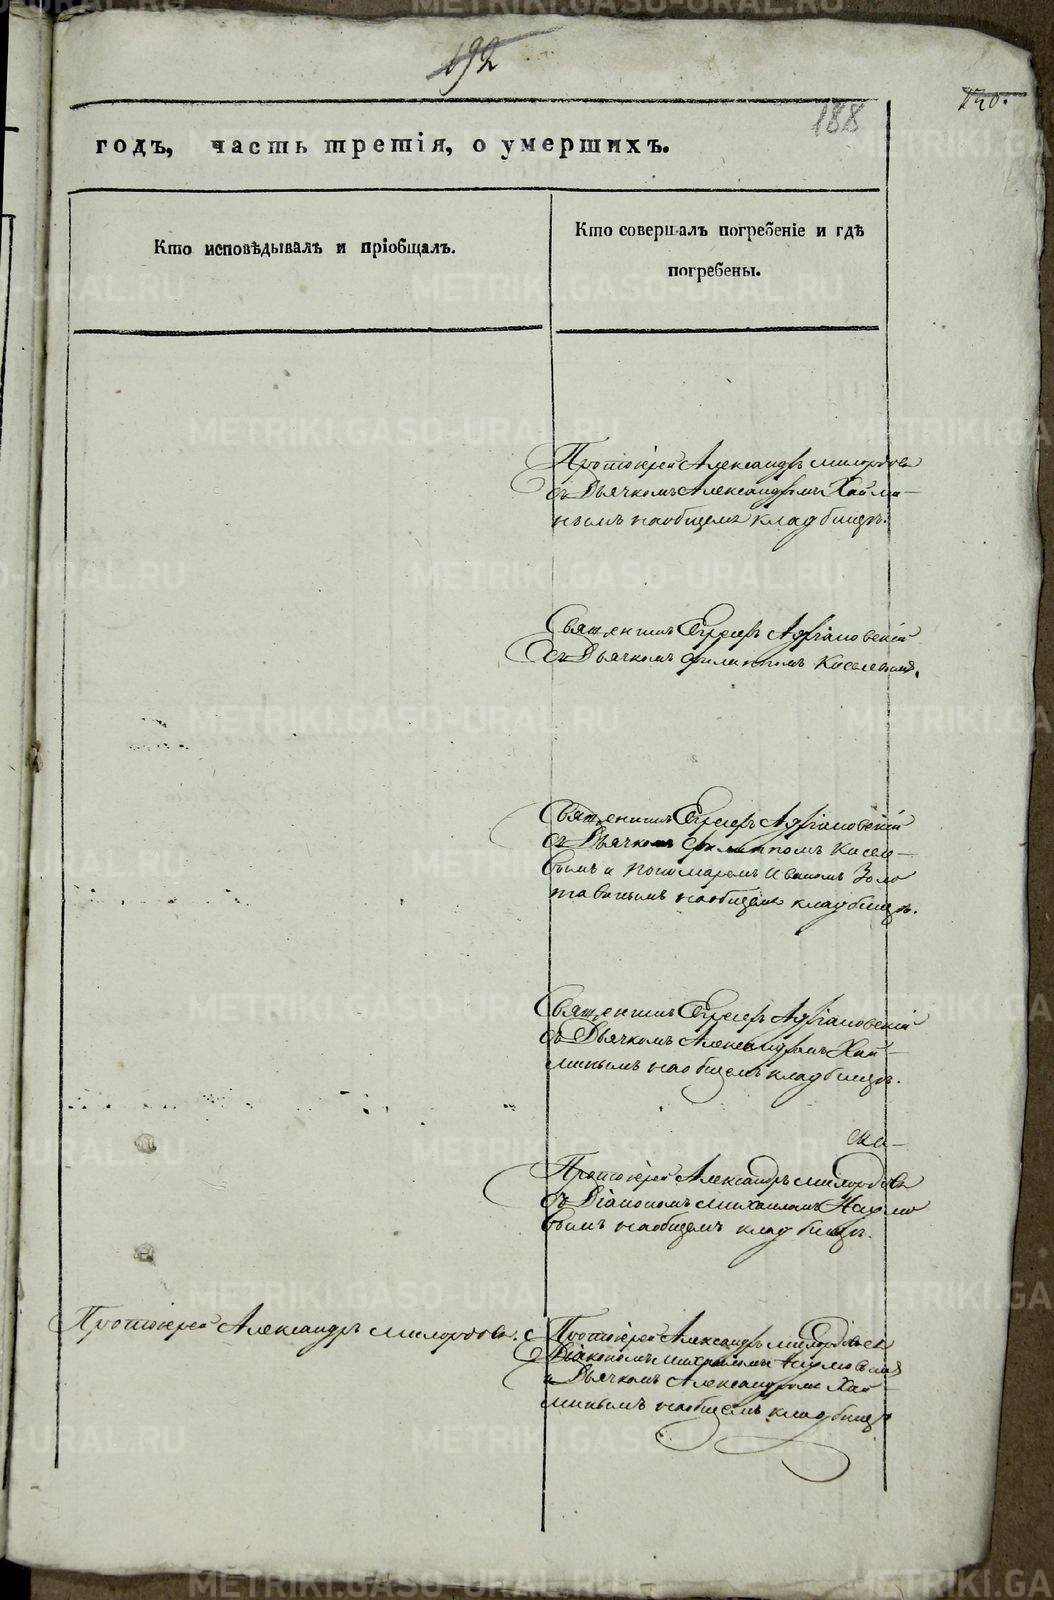 192
140.
188
годъ, часть третія, о умершихъ.
Кто исповѣдывалъ и пріобщалъ.
Кто совершалъ погребеніе и гдѣ
погребены.
Протоіерей Александръ Милордовъ
съ Дьячкомъ Александромъ Хайми-
нымъ на общемъ кладбищѣ.
Священникъ Егоръ Адріановскій
съ Дьячкомъ Филиппомъ Киселевымъ.
Священникъ Егоръ Адріановскій
съ Дьячкомъ Филиппомъ Кисел-
вымъ и Пономаремъ Иваномъ Золо
тавинымъ на общемъ кладбищѣ.
Священникъ Егоръ Адріановскій
съ Дьячкомъ Александромъ Хай-
минымъ на общемъ кладбищѣ.
Протоіерей Александръ Милордовъ
съ Діакономъ Михаиломъ
вымъ на общемъ кладбищѣ.
Протоіерей Александръ Милордовъ. с
Протоіерей Александръ Милордовъ съ
Діакономъ Михаиломъ
и Дьячкомъ Александромъ Хай-
минымъ на общемъ кладбищѣ
METRIKI.GASO-URAL.RU